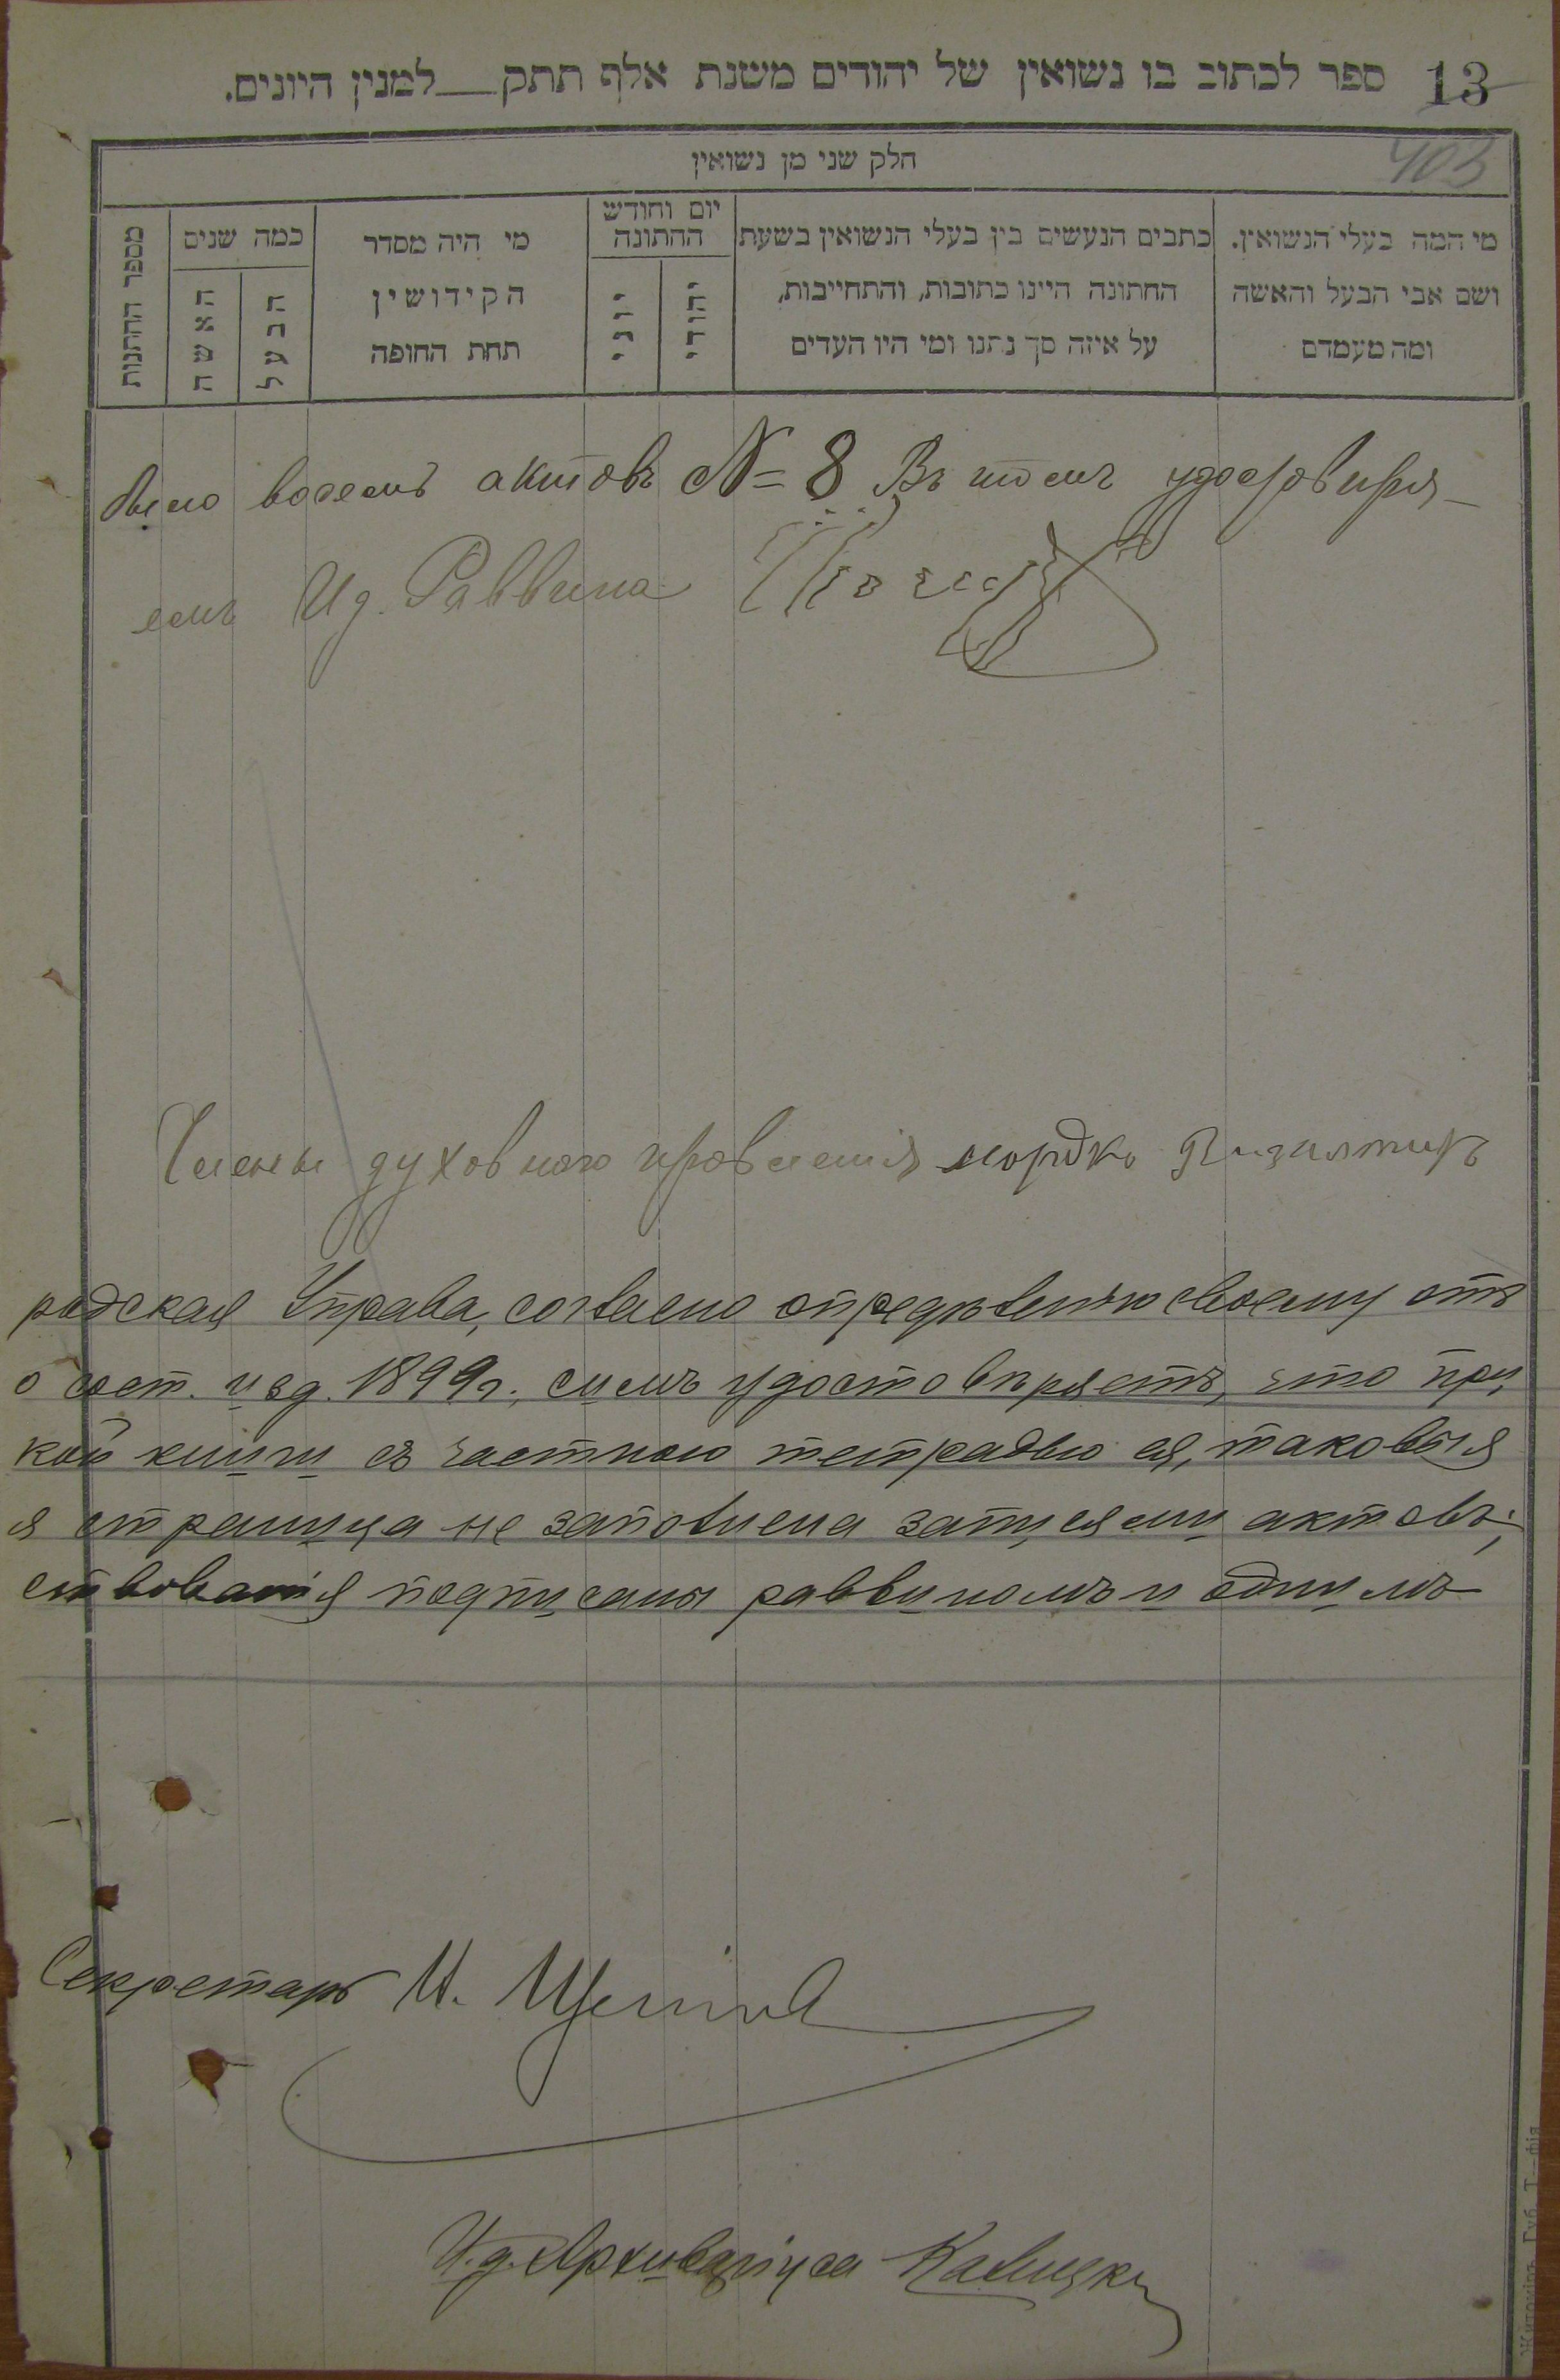 13 ספר לכתוב בו נשואין של יהודים משנת אלף תתק___למנין היונים.
403
חלק שני מן נשואין
מי המה בעלי הנשואין.
ושם אבי הבעל והאשה
ומה מעמדם
כתבים הנעשים בין בעלי הנשואין בשעת
החתונה היינו כתובות, והתחייבות,
על איזה סך נתנו ומי היו העדים
יום וחודש
החתונה
יהודי
יוני
מי היה מסדר
הקידושין
תחת החופה
כמה שנים
הבעל
האשה
מספר החתנות
восемь актовъ № 8 Въ томъ удостовиря-
емъ И д. Раввина
Члены духовного провления мордко
родская Управа, согласно определенію своему отъ
о сост. изд. 1899 г., симъ удостовѣряетъ, что при
кой книги съ частною тетрадью ея, таковыя
я страница не заполнена записями актовъ;
ствованія подписаны раввиномъ и однимъ
Секретарь И.
И. д. Архиваріуса Калицкій
Житоміръ. Губ. Т—фія